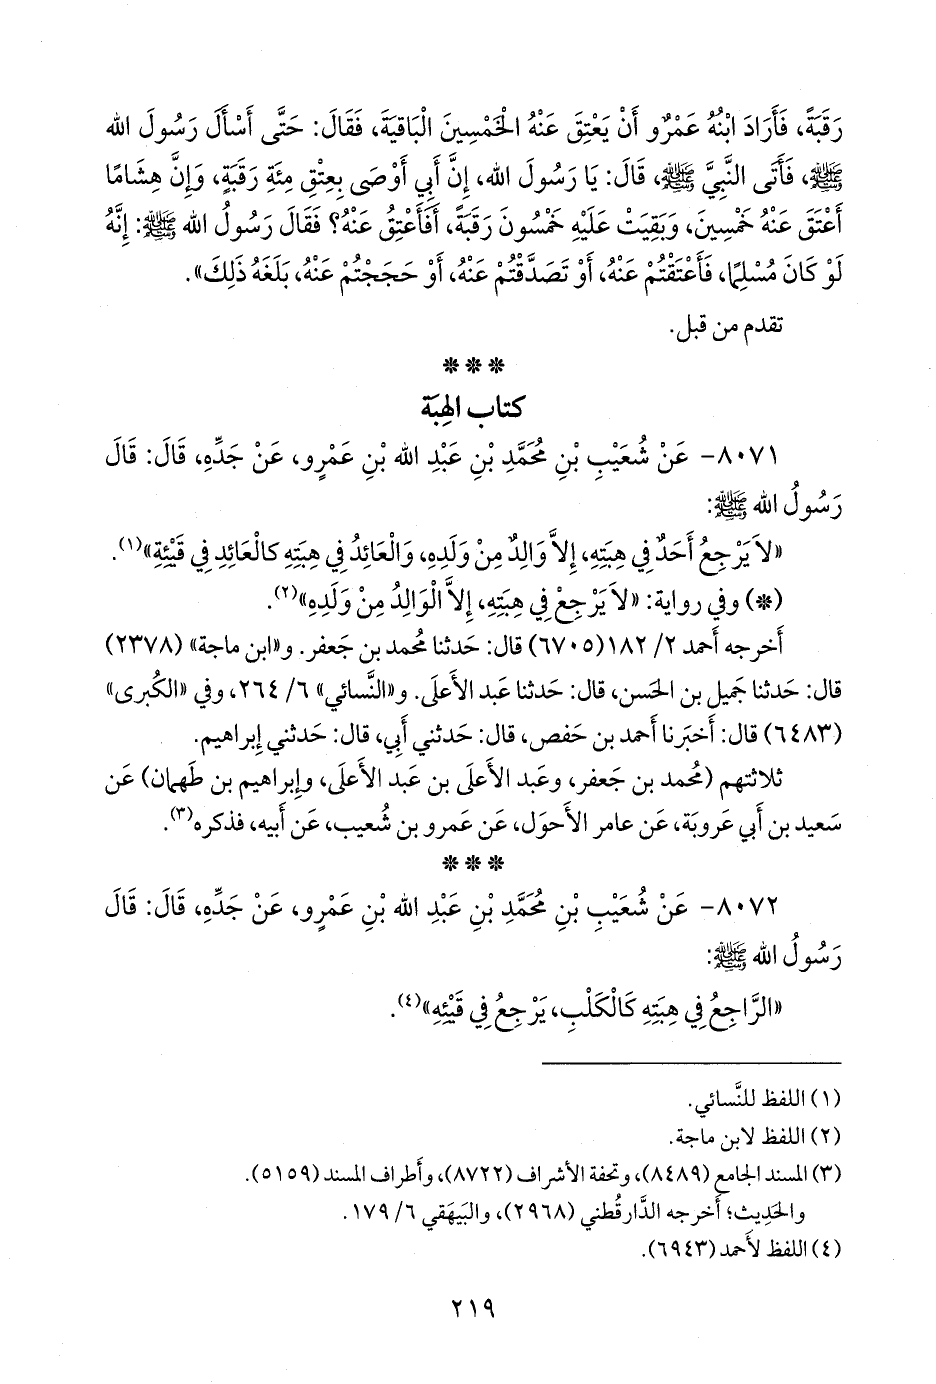 رَقَبَةً، فَأَرَادَ ابْنُهُ عَمْرٌو أَنْ يَعْتِقَ عَنْهُ الْخَمْسِينَ الْبَاقِيَةَ، فَقَالَ: حَتَّى أَسْأَلَ رَسُولَ الله
ﷺ، فَأَتَى النَّبِيَّ ﷺ، قَالَ: يَا رَسُولَ الله، إِنَّ أَبِي أَوْصَى بِعِتْقِ مِئَةِ رَقَبَةٍ، وَإِنَّ هِشَامًا
أَعْتَقَ عَنْهُ خَمْسِينَ، وَبَقِيَتْ عَلَيْهِ خَمْسُونَ رَقَبَةً، أَفَأَعْتِقُ عَنْهُ؟ فَقَالَ رَسُولُ الله ﷺ: إِنَّهُ
لَوْ كَانَ مُسْلِمًا، فَأَعْتَقْتُمْ عَنْهُ، أَوْ تَصَدَّقْتُمْ عَنْهُ، أَوْ حَجَجْتُمْ عَنْهُ، بَلَغَهُ ذَلِكَ».
تقدم من قبل.
***
كتاب الهِبَة
٨٠٧١- عَنْ شُعَيْبِ بْنِ مُحَمَّدِ بْنِ عَبْدِ الله بْنِ عَمْرٍو، عَنْ جَدِّهِ، قَالَ: قَالَ
رَسُولُ الله ﷺ:
«لاَ يَرْجِعُ أَحَدٌ فِي هِبَتِهِ، إِلاَّ وَالِدٌ مِنْ وَلَدِهِ، وَالْعَائِدُ فِي هِبَتِهِ كَالْعَائِدِ فِي قَيْئِهِ»(١).
(*) وفي رواية: «لاَ يَرْجِعْ فِي هِبَتِهِ، إِلاَّ الْوَالِدُ مِنْ وَلَدِهِ»(٢).
أَخرجه أَحمد ٢/ ١٨٢(٦٧٠٥) قال: حَدثنا مُحمد بن جَعفر. و«ابن ماجة» (٢٣٧٨)
قال: حَدثنا جَميل بن الحَسن، قال: حَدثنا عَبد الأَعلَى. و«النَّسائي» ٦/ ٢٦٤، وفي «الكُبرى»
(٦٤٨٣) قال: أَخبَرنا أَحمد بن حَفص، قال: حَدثني أَبي، قال: حَدثني إِبراهيم.
ثلاثتهم (مُحمد بن جَعفر، وعَبد الأَعلى بن عَبد الأَعلى، وإِبراهيم بن طَهمان) عَن
سَعيد بن أَبي عَروبَة، عَن عامر الأَحوَل، عَن عَمرو بن شُعيب، عَن أَبيه، فذكره(٣).
***
٨٠٧٢- عَنْ شُعَيْبِ بْنِ مُحَمَّدِ بْنِ عَبْدِ الله بْنِ عَمْرٍو، عَنْ جَدِّهِ، قَالَ: قَالَ
رَسُولُ الله ﷺ:
«الرَّاجِعُ فِي هِبَتِهِ كَالْكَلْبِ، يَرْجِعُ فِي قَيْئِهِ»(٤).
(١) اللفظ للنَّسائي.
(٢) اللفظ لابن ماجة.
(٣) المسند الجامع (٨٤٨٩)، وتحفة الأشراف (٨٧٢٢)، وأَطراف المسند (٥١٥٩).
والحَدِيث؛ أَخرجه الدَّارقُطني (٢٩٦٨)، والبَيهَقي ٦/ ١٧٩.
(٤) اللفظ لأَحمد (٦٩٤٣).
٢١٩